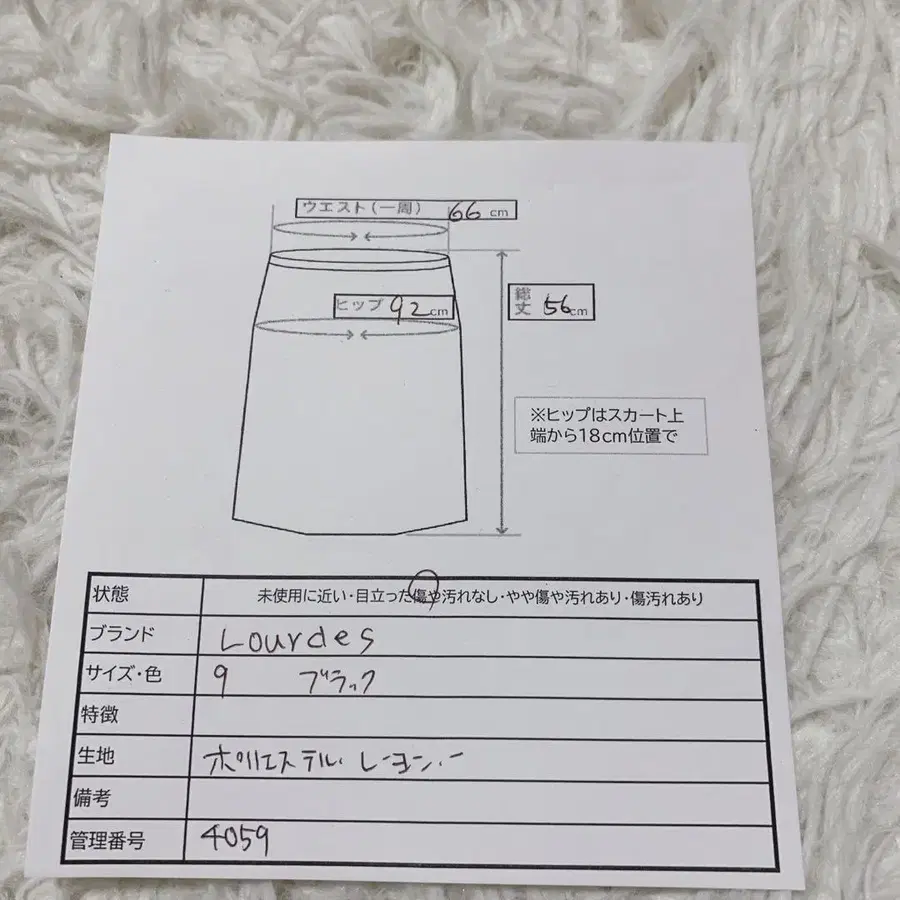 ウエスト(一周) 66 cm
ヒップ 92 cm
総丈 56 cm
※ヒップはスカート上
端から18cm位置で
状態 未使用に近い・目立った傷や汚れなし・やや傷や汚れあり・傷汚れあり
ブランド Lourdes
サイズ・色 9 ブラック
特徴
生地 ポリエステル・レーヨン・
備考
管理番号 4059